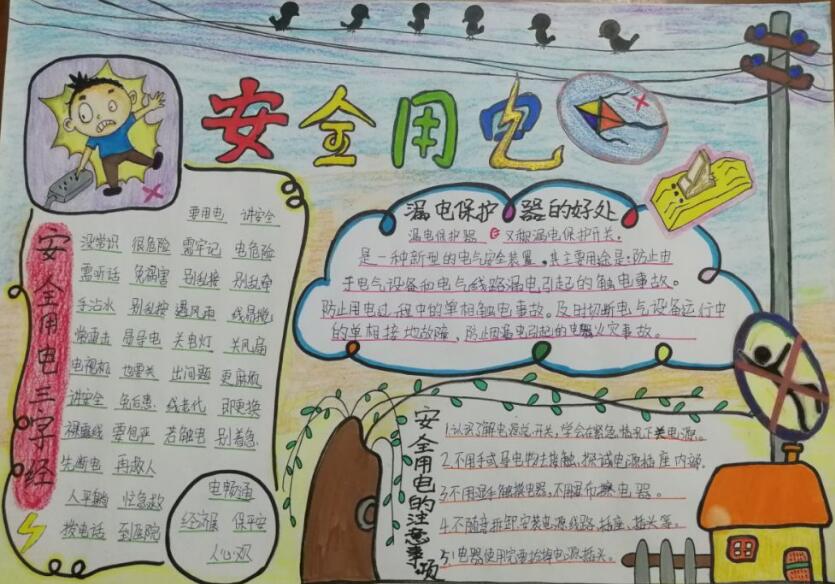 安全用电
安全用电三字经
要用电 讲安全
没常识 很危险 需牢记 电危险
需听话 免祸害 别乱接 别乱牵
手沾水 别乱按 遇风雨 线易搅
常雷击 易导电 关电灯 关风扇
电视机 也要关 出问题 更麻烦
讲安全 免后患 线老代 即更换
裸露线 要包严 若触电 别着急
先断电 再救人
人平躺 忙急救
拨电话 到医院
电畅通
经济强 保平安
人心欢
漏电保护器的好处
漏电保护器 又称漏电保护开关。
是一种新型的电气安全装置。其主要用途是:防止由
于电气设备和电气线路漏电引起的触电事故。
防止用电过程中的单相触电事故。及时切断电气设备运行中
的单相接地故障,防止因漏电引起的电器火灾事故。
安全用电的注意事项
1.认识了解电源总开关,学会在紧急情况下关电源。
2.不用手或导电物去接触,探试电源插座内部.
3.不用湿手触摸电器,不用湿布擦电器。
4.不随意拆卸,安装电源线路,插座,插头等。
5.电器使用完要拔掉电源插头。